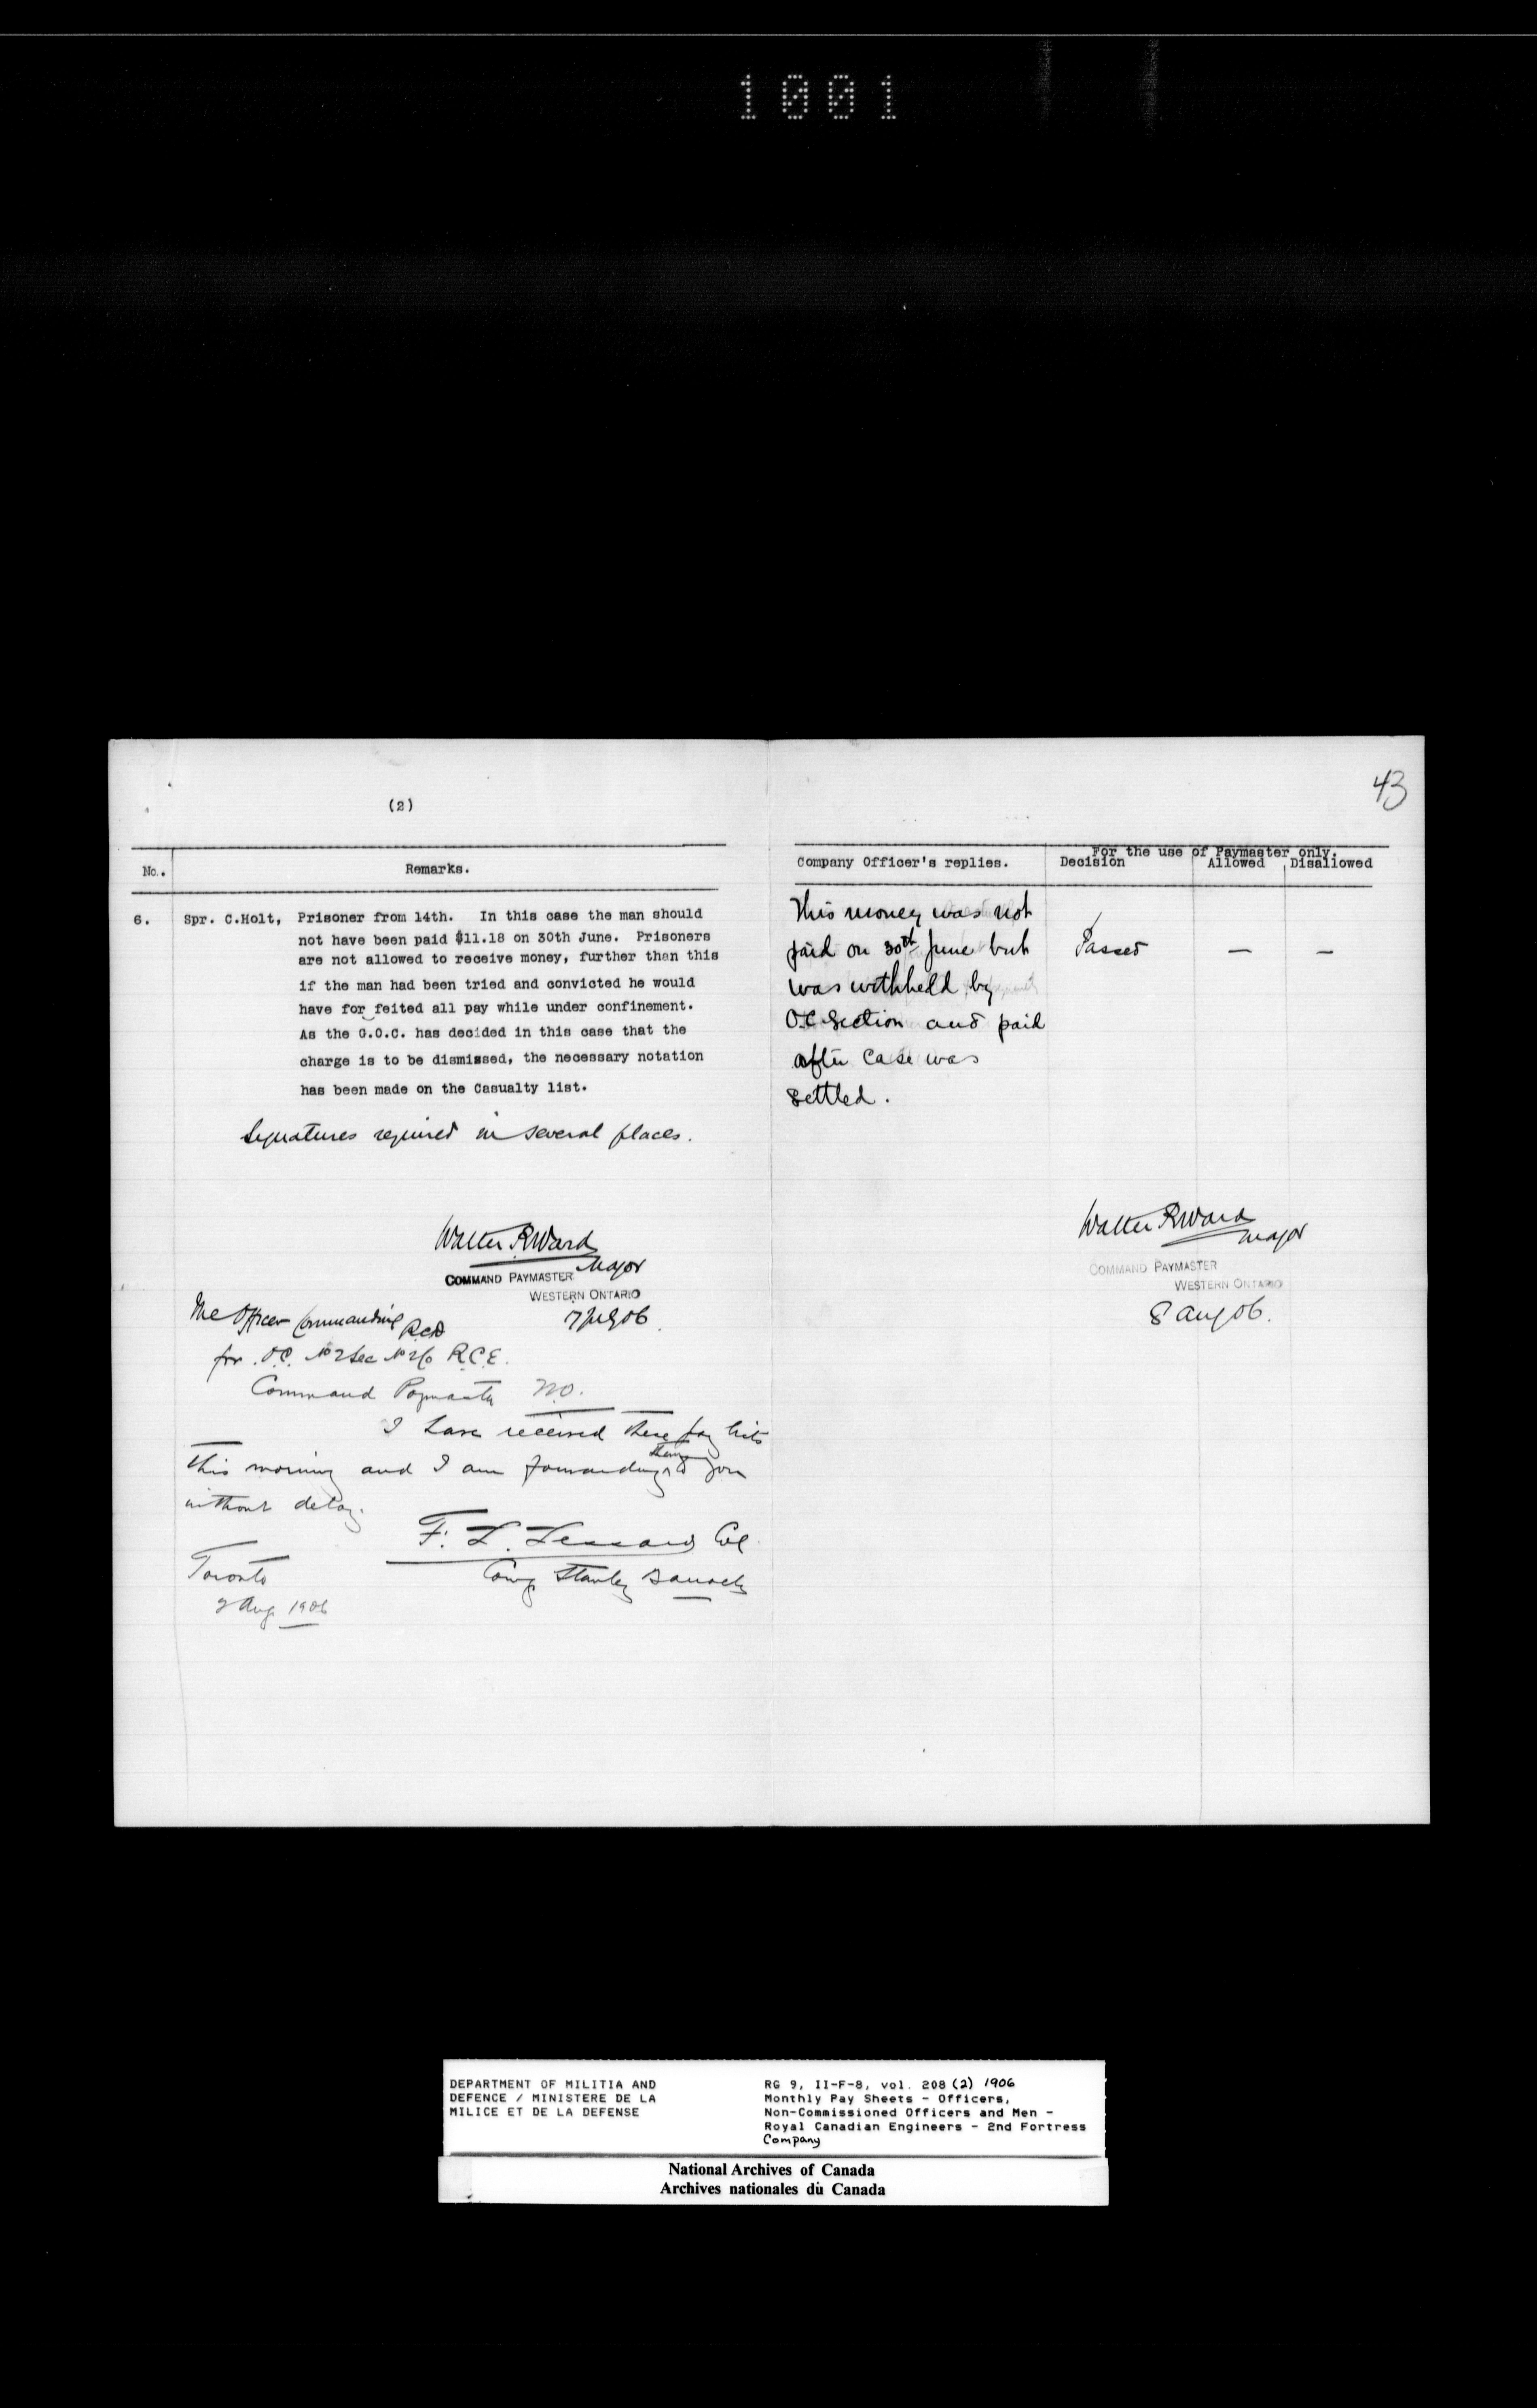 1001
43
(2)
No.. Remarks.
Company Officer's replies.
For the use of Paymaster only.
Decision Allowed Disallowed
6. Spr. C.Holt, Prisoner from 14th. In this case the man should
not have been paid $11.18 on 30th June. Prisoners
are not allowed to receive money, further than this
if the man had been tried and convicted he would
have for feited all pay while under confinement.
As the G.O.C. has decided in this case that the
charge is to be dismissed, the necessary notation
has been made on the Casualty list.
Signatures required in several places.
Walter R Ward
Major
COMMAND PAYMASTER
WESTERN ONTARIO
7 July 06.
The Officer Commanding R.C.D
for O.C. No 2 Sec No 2 Co R.C.E.
Command Paymaster W.O.
I have received these pay lists
this morning and I am forwarding them to you
without delay.
F. L. Lessard Col
Comg Stanley Barracks
Toronto
2 Aug 1906
This money was not
paid on 30th June but
was withheld by
O.C. Section and paid
after case was
settled.
Passed — —
Walter R Ward
Major
COMMAND PAYMASTER
WESTERN ONTARIO
8 Aug 06.
DEPARTMENT OF MILITIA AND
DEFENCE / MINISTERE DE LA
MILICE ET DE LA DEFENSE
RG 9, II-F-8, vol. 208 (2) 1906
Monthly Pay Sheets - Officers,
Non-Commissioned Officers and Men -
Royal Canadian Engineers - 2nd Fortress
Company
National Archives of Canada
Archives nationales du Canada